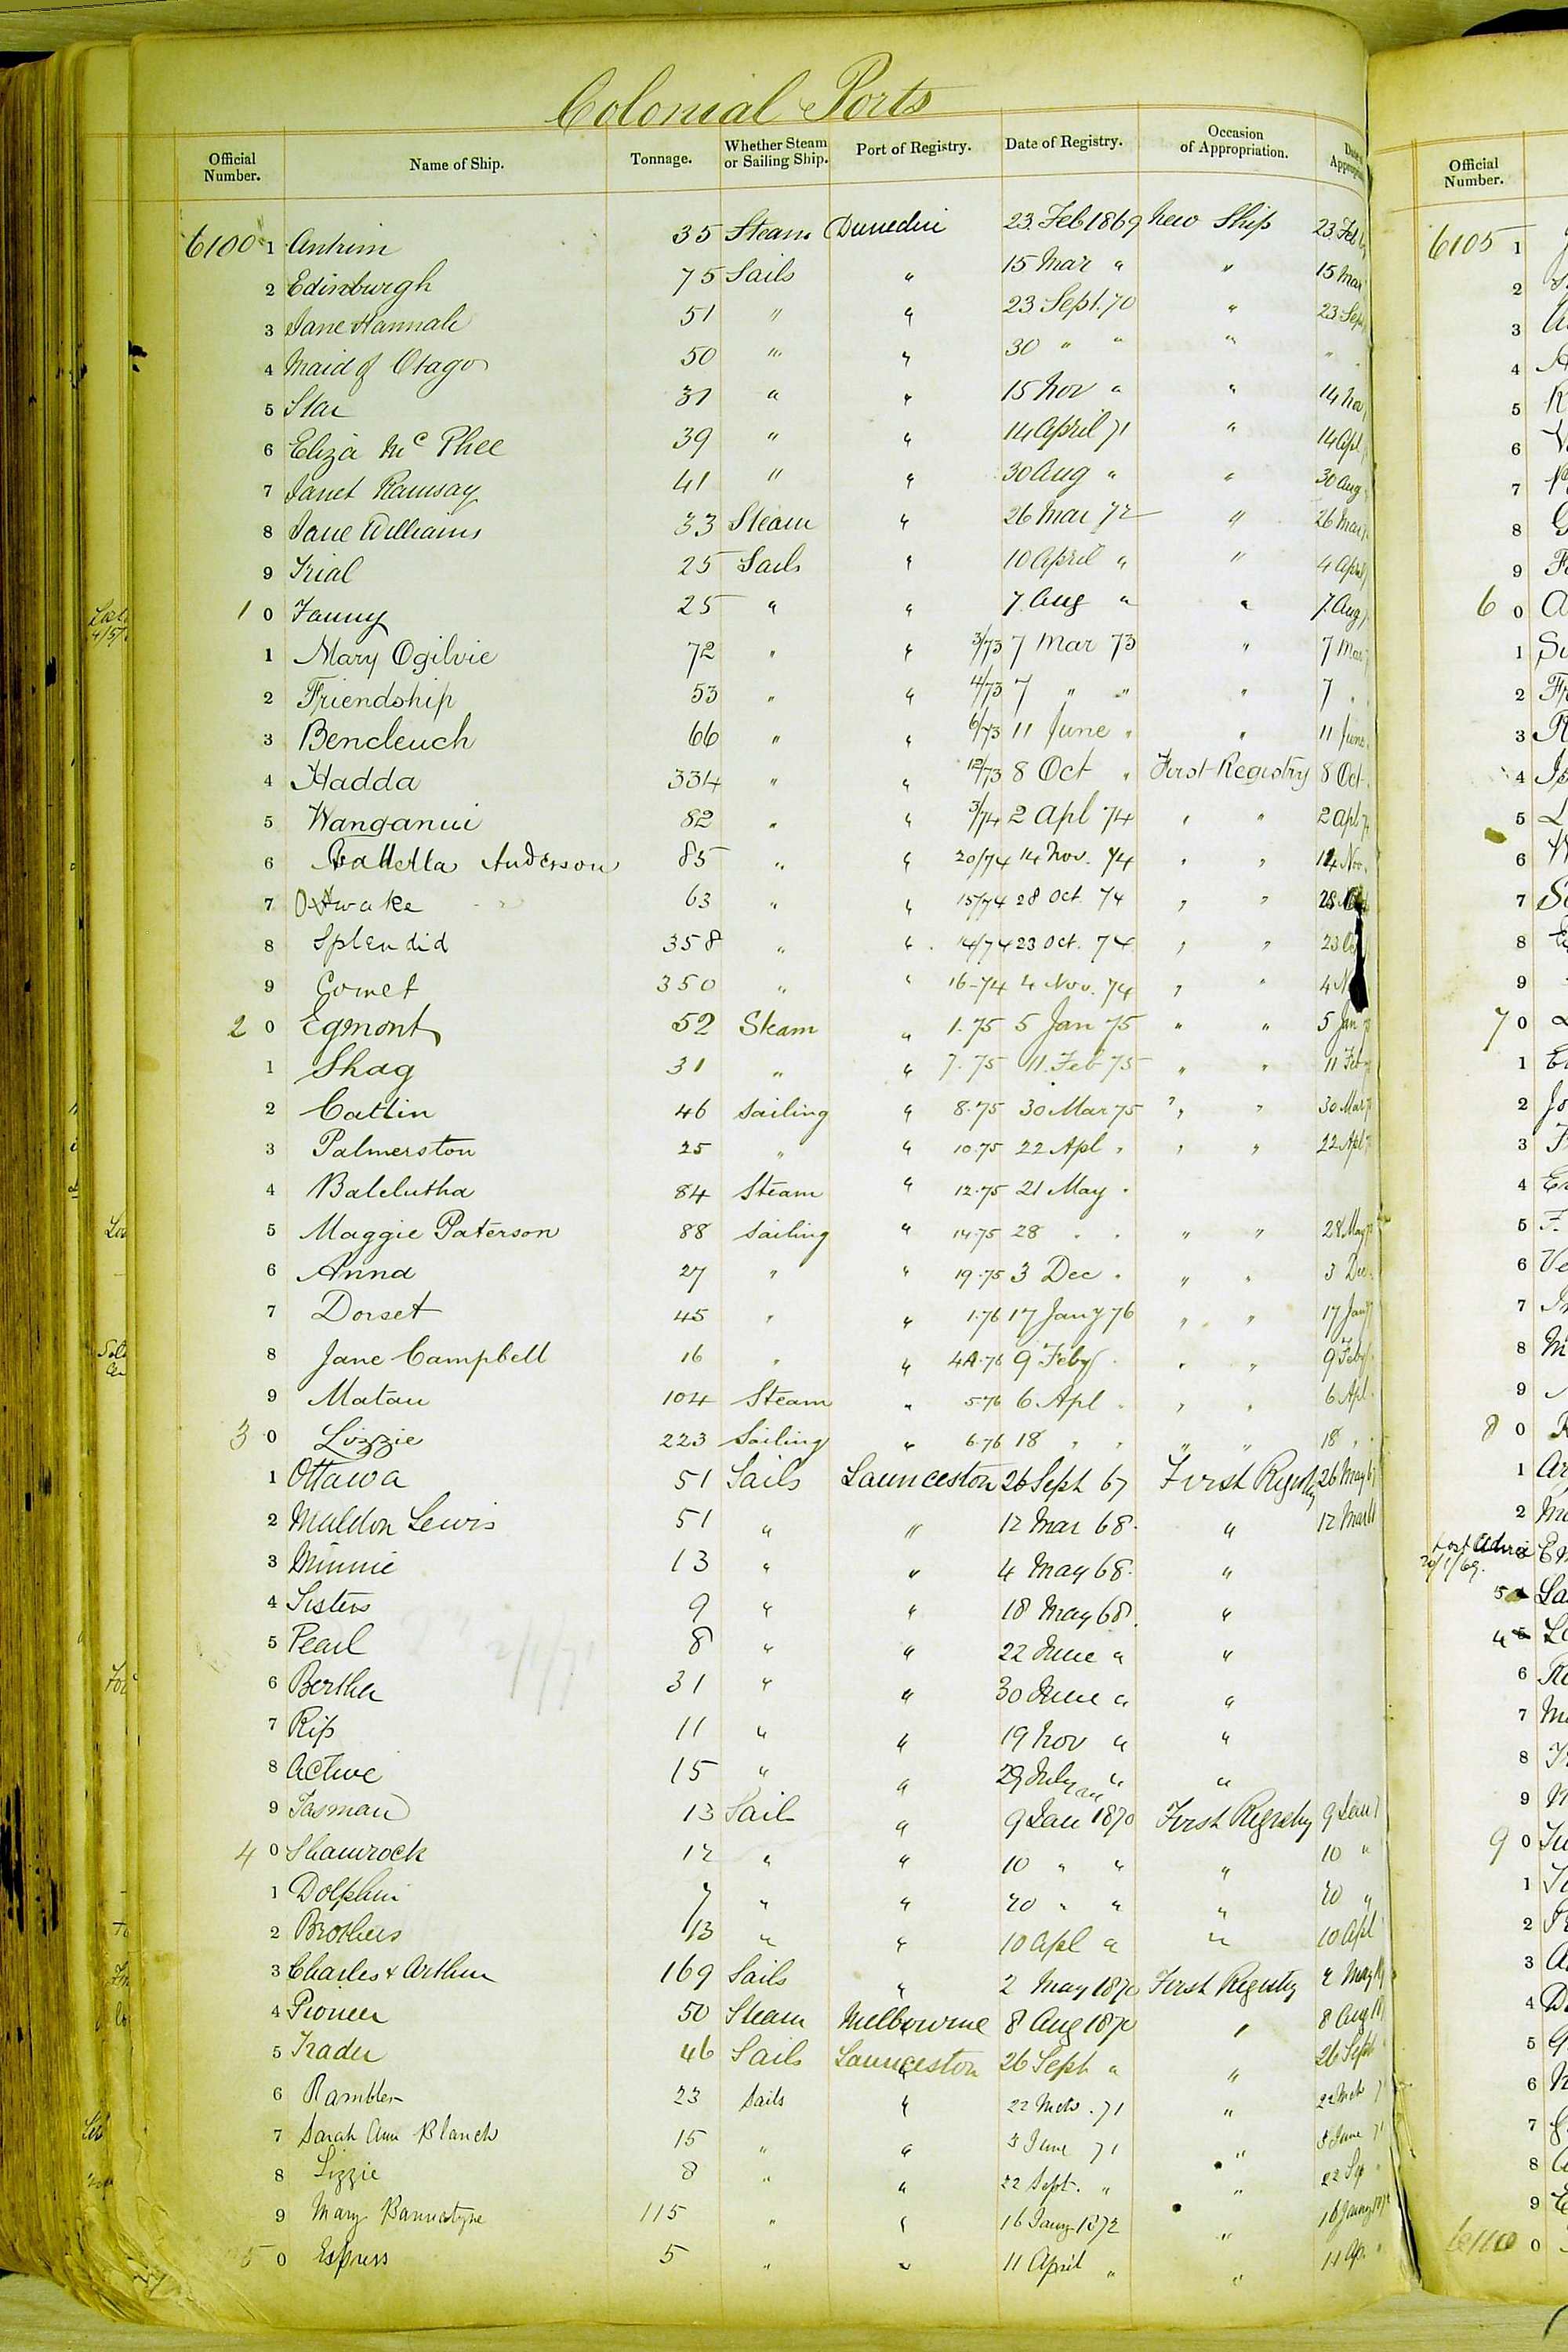 Colonial Ports
Official Number. Name of Ship. Tonnage. Whether Steam or Sailing Ship. Port of Registry. Date of Registry. Occasion of Appropriation.
6100 1 Antrim 35 Steam Dunedin 23 Feb 1869 New Ship 23 Feb
2 Edinburgh 75 Sails " 15 Mar " " 15 Mar
3 Jane Hannah 51 " " 23 Sept. 70 " 23 Sep
4 Maid of Otago 50 " " 30 " " " "
5 Star 31 " " 15 Nov " " 14 Nov
6 Eliza Mc Phee 39 " " 14 April 71 " 14 Apl
7 Janet Ramsay 41 " " 30 Aug " " 30 Aug
8 Jane Williams 33 Steam " 26 Mar 72 " 26 Mar
9 Trial 25 Sails " 10 April " " 4 Apl
1 0 Fanny 25 " " 7 Aug " " 7 Aug
1 Mary Ogilvie 72 " " 3/73 7 Mar 73 " 7 Mar
2 Friendship 53 " " 4/73 7 " " " 7 "
3 Bencleuch 66 " " 6/73 11 June " " 11 June
4 Hadda 334 " " 12/73 8 Oct " First Registry 8 Oct
5 Wanganui 82 " " 3/74 2 Apl 74 " " 2 Apl
6 Isabella Anderson 85 " " 20/74 14 Nov. 74 " " 14 Nov.
7 Owake 63 " " 15/74 28 Oct. 74 " " 28
8 Splendid 358 " " 14/74 23 Oct. 74 " " 23 Oc
9 Comet 350 " " 16-74 4 Nov. 74 " " 4 N
2 0 Egmont 52 Steam " 1.75 5 Jan 75 " " 5 Jan
1 Shag 31 " " 7.75 11 Feb 75 " " 11 Feb
2 Catlin 46 Sailing " 8.75 30 Mar 75 " " 30 Mar
3 Palmerston 25 " " 10.75 22 Apl " " " 22 Apl
4 Balclutha 84 Steam " 12.75 21 May "
5 Maggie Paterson 88 Sailing " 14.75 28 " " " " 28 May
6 Anna 27 " " 19.75 3 Dec " " " 3 Dec
7 Dorset 45 " " 1.76 17 Jany 76 " " 17 Jany
8 Jane Campbell 16 " " 4A.76 9 Feby " " " 9 Feby
9 Matau 104 Steam " 5.76 6 Apl " " " 6 Apl
3 0 Lizzie 223 Sailing " 6.76 18 " " " " 18 "
1 Ottawa 51 Sails Launceston 26 Sept 67 First Registry 26 May 67
2 Maldon Lewis 51 " " 12 Mar 68. " 12 Mar
3 Minnie 13 " " 4 May 68. "
4 Sisters 9 " " 18 May 68. "
5 Pearl 8 " " 22 June " "
6 Bertha 31 " " 30 June " "
7 Rip 11 " " 19 Nov " "
8 Active 15 " " 29 July " "
9 Tasman 13 Sail " 9 Jan 1870 First Registry 9 Jan
4 0 Shamrock 12 " " 10 " " " 10 "
1 Dolphin 7 " " 20 " " " 20 "
2 Brothers 13 " " 10 Apl " " 10 Apl
3 Charles & Arthur 169 Sails " 2 May 1870 First Registry 2 May
4 Pioneer 50 Steam Melbourne 8 Aug 1870 " 8 Aug
5 Trader 46 Sails Launceston 26 Sept " " 26 Sept
6 Rambler 23 Sails " 22 Mch . 71 " 22 Mch
7 Sarah Ann Blanch 15 " " 3 June 71 " 3 June 71
8 Lizzie 8 " " 22 Sept. " " 22 Sep
9 Mary Bannatyne 115 " " 16 Jany 1872 " 16 Jany
5 0 Express 5 " " 11 April " " 11 Ap
Official Number.
6105 1
2
3
4
5
6
7
8
9
6 0
1
2
3
4
5
6
7
8
9
7 0
1
2
3
4
5
6
7
8
9
8 0
1
2
Lost
20/1/69.
5
4
6
7
8
9
9 0
1
2
3
4
5
6
7
8
9
6110 0